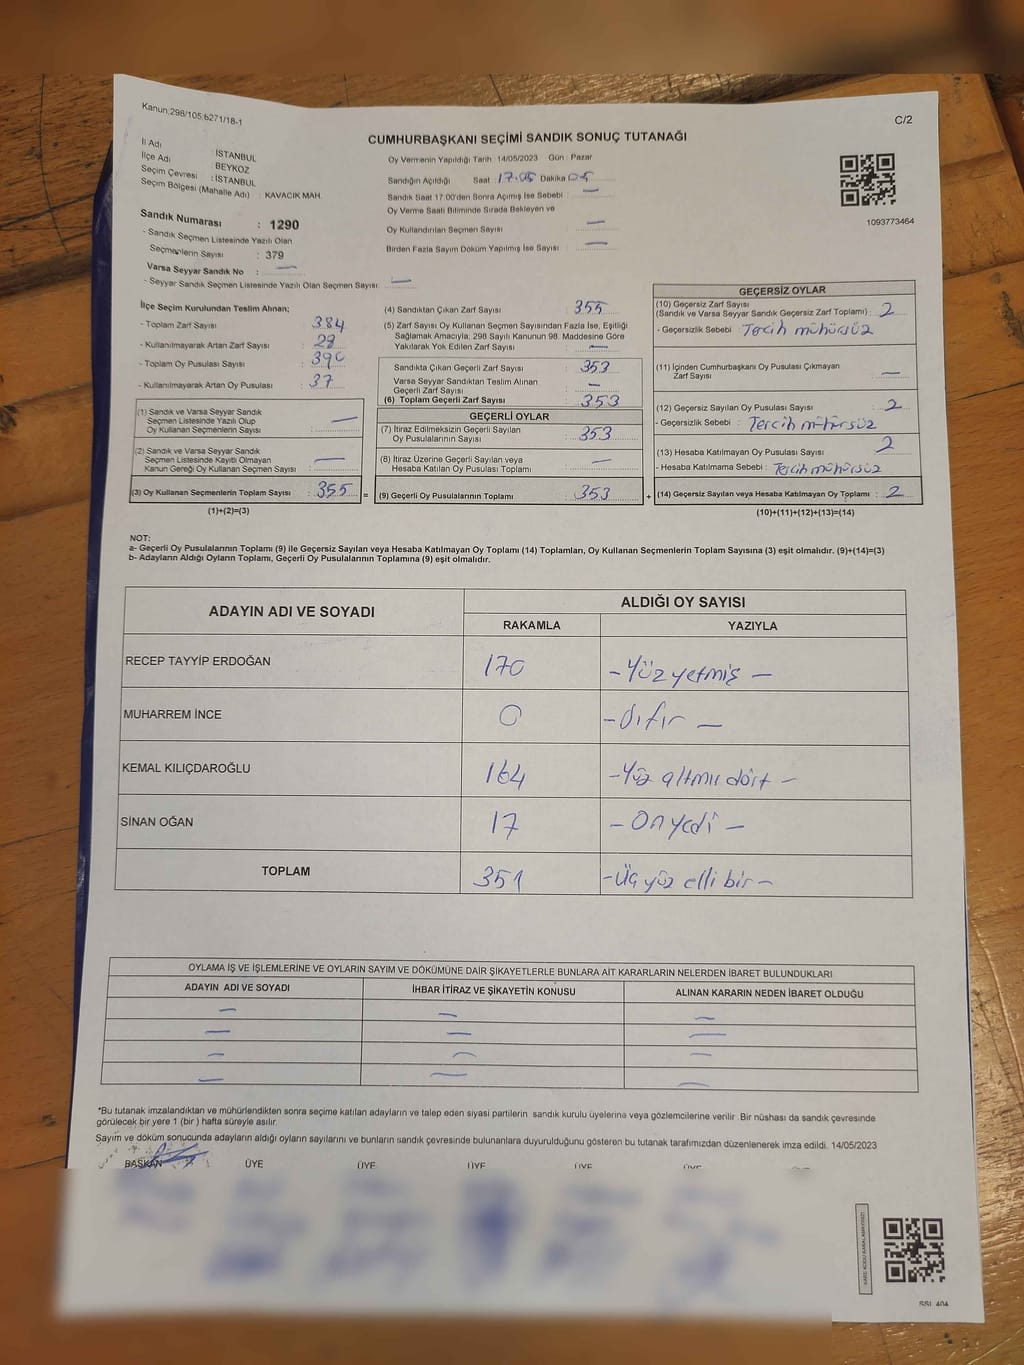 Kanun:298/105,6271/18-1
C/2
CUMHURBAŞKANI SEÇİMİ SANDIK SONUÇ TUTANAĞI
İl Adı : İSTANBUL
İlçe Adı : BEYKOZ
Seçim Çevresi : İSTANBUL
Seçim Bölgesi (Mahalle Adı) : KAVACIK MAH.
Oy Vermenin Yapıldığı Tarih 14/05/2023 Gün : Pazar
Sandığın Açıldığı Saat 17.05 Dakika 05
Sandık Saat 17:00'den Sonra Açılmış İse Sebebi : —
Oy Verme Saati Bitiminde Sırada Bekleyen ve
Oy Kullandırılan Seçmen Sayısı : —
Birden Fazla Sayım Döküm Yapılmış İse Sayısı : —
1093773464
Sandık Numarası : 1290
- Sandık Seçmen Listesinde Yazılı Olan
Seçmenlerin Sayısı : 379
Varsa Seyyar Sandık No : —
- Seyyar Sandık Seçmen Listesinde Yazılı Olan Seçmen Sayısı: —
İlçe Seçim Kurulundan Teslim Alınan;
- Toplam Zarf Sayısı : 384
- Kullanılmayarak Artan Zarf Sayısı : 29
- Toplam Oy Pusulası Sayısı : 390
- Kullanılmayarak Artan Oy Pusulası : 37
(1) Sandık ve Varsa Seyyar Sandık
Seçmen Listesinde Yazılı Olup
Oy Kullanan Seçmenlerin Sayısı : —
(2) Sandık ve Varsa Seyyar Sandık
Seçmen Listesinde Kayıtlı Olmayan
Kanun Gereği Oy Kullanan Seçmen Sayısı : —
(3) Oy Kullanan Seçmenlerin Toplam Sayısı : 355 =
(1)+(2)=(3)
(4) Sandıktan Çıkan Zarf Sayısı : 355
(5) Zarf Sayısı Oy Kullanan Seçmen Sayısından Fazla İse, Eşitliği
Sağlamak Amacıyla; 298 Sayılı Kanunun 98. Maddesine Göre
Yakılarak Yok Edilen Zarf Sayısı : —
Sandıkta Çıkan Geçerli Zarf Sayısı : 353
Varsa Seyyar Sandıktan Teslim Alınan
Geçerli Zarf Sayısı : —
(6) Toplam Geçerli Zarf Sayısı : 353
GEÇERLİ OYLAR
(7) İtiraz Edilmeksizin Geçerli Sayılan
Oy Pusulalarının Sayısı : 353
(8) İtiraz Üzerine Geçerli Sayılan veya
Hesaba Katılan Oy Pusulası Toplamı : —
(9) Geçerli Oy Pusulalarının Toplamı : 353 +
GEÇERSİZ OYLAR
(10) Geçersiz Zarf Sayısı
(Sandık ve Varsa Seyyar Sandık Geçersiz Zarf Toplamı) : 2
- Geçersizlik Sebebi : Tercih mühürsüz
(11) İçinden Cumhurbaşkanı Oy Pusulası Çıkmayan
Zarf Sayısı : —
(12) Geçersiz Sayılan Oy Pusulası Sayısı : 2
- Geçersizlik Sebebi : Tercih mühürsüz
(13) Hesaba Katılmayan Oy Pusulası Sayısı : 2
- Hesaba Katılmama Sebebi : Tercih mühürsüz
(14) Geçersiz Sayılan veya Hesaba Katılmayan Oy Toplamı : 2
(10)+(11)+(12)+(13)=(14)
NOT:
a- Geçerli Oy Pusulalarının Toplamı (9) ile Geçersiz Sayılan veya Hesaba Katılmayan Oy Toplamı (14) Toplamları, Oy Kullanan Seçmenlerin Toplam Sayısına (3) eşit olmalıdır. (9)+(14)=(3)
b- Adayların Aldığı Oyların Toplamı, Geçerli Oy Pusulalarının Toplamına (9) eşit olmalıdır.
ADAYIN ADI VE SOYADI
ALDIĞI OY SAYISI
RAKAMLA YAZIYLA
RECEP TAYYİP ERDOĞAN 170 - Yüz yetmiş -
MUHARREM İNCE 0 - Sıfır -
KEMAL KILIÇDAROĞLU 164 - Yüz altmış dört -
SİNAN OĞAN 17 - On yedi -
TOPLAM 351 - Üç yüz elli bir -
OYLAMA İŞ VE İŞLEMLERİNE VE OYLARIN SAYIM VE DÖKÜMÜNE DAİR ŞİKAYETLERLE BUNLARA AİT KARARLARIN NELERDEN İBARET BULUNDUKLARI
ADAYIN ADI VE SOYADI İHBAR İTİRAZ VE ŞİKAYETİN KONUSU ALINAN KARARIN NEDEN İBARET OLDUĞU
— — —
— — —
— — —
— — —
*Bu tutanak imzalandıktan ve mühürlendikten sonra seçime katılan adayların ve talep eden siyasi partilerin sandık kurulu üyelerine veya gözlemcilerine verilir. Bir nüshası da sandık çevresinde
görülecek bir yere 1 (bir) hafta süreyle asılır.
Sayım ve döküm sonucunda adayların aldığı oyların sayılarını ve bunların sandık çevresinde bulunanlara duyurulduğunu gösteren bu tutanak tarafımızdan düzenlenerek imza edildi. 14/05/2023
BAŞKAN ÜYE ÜYE ÜYE ÜYE ÜYE
SSI_404